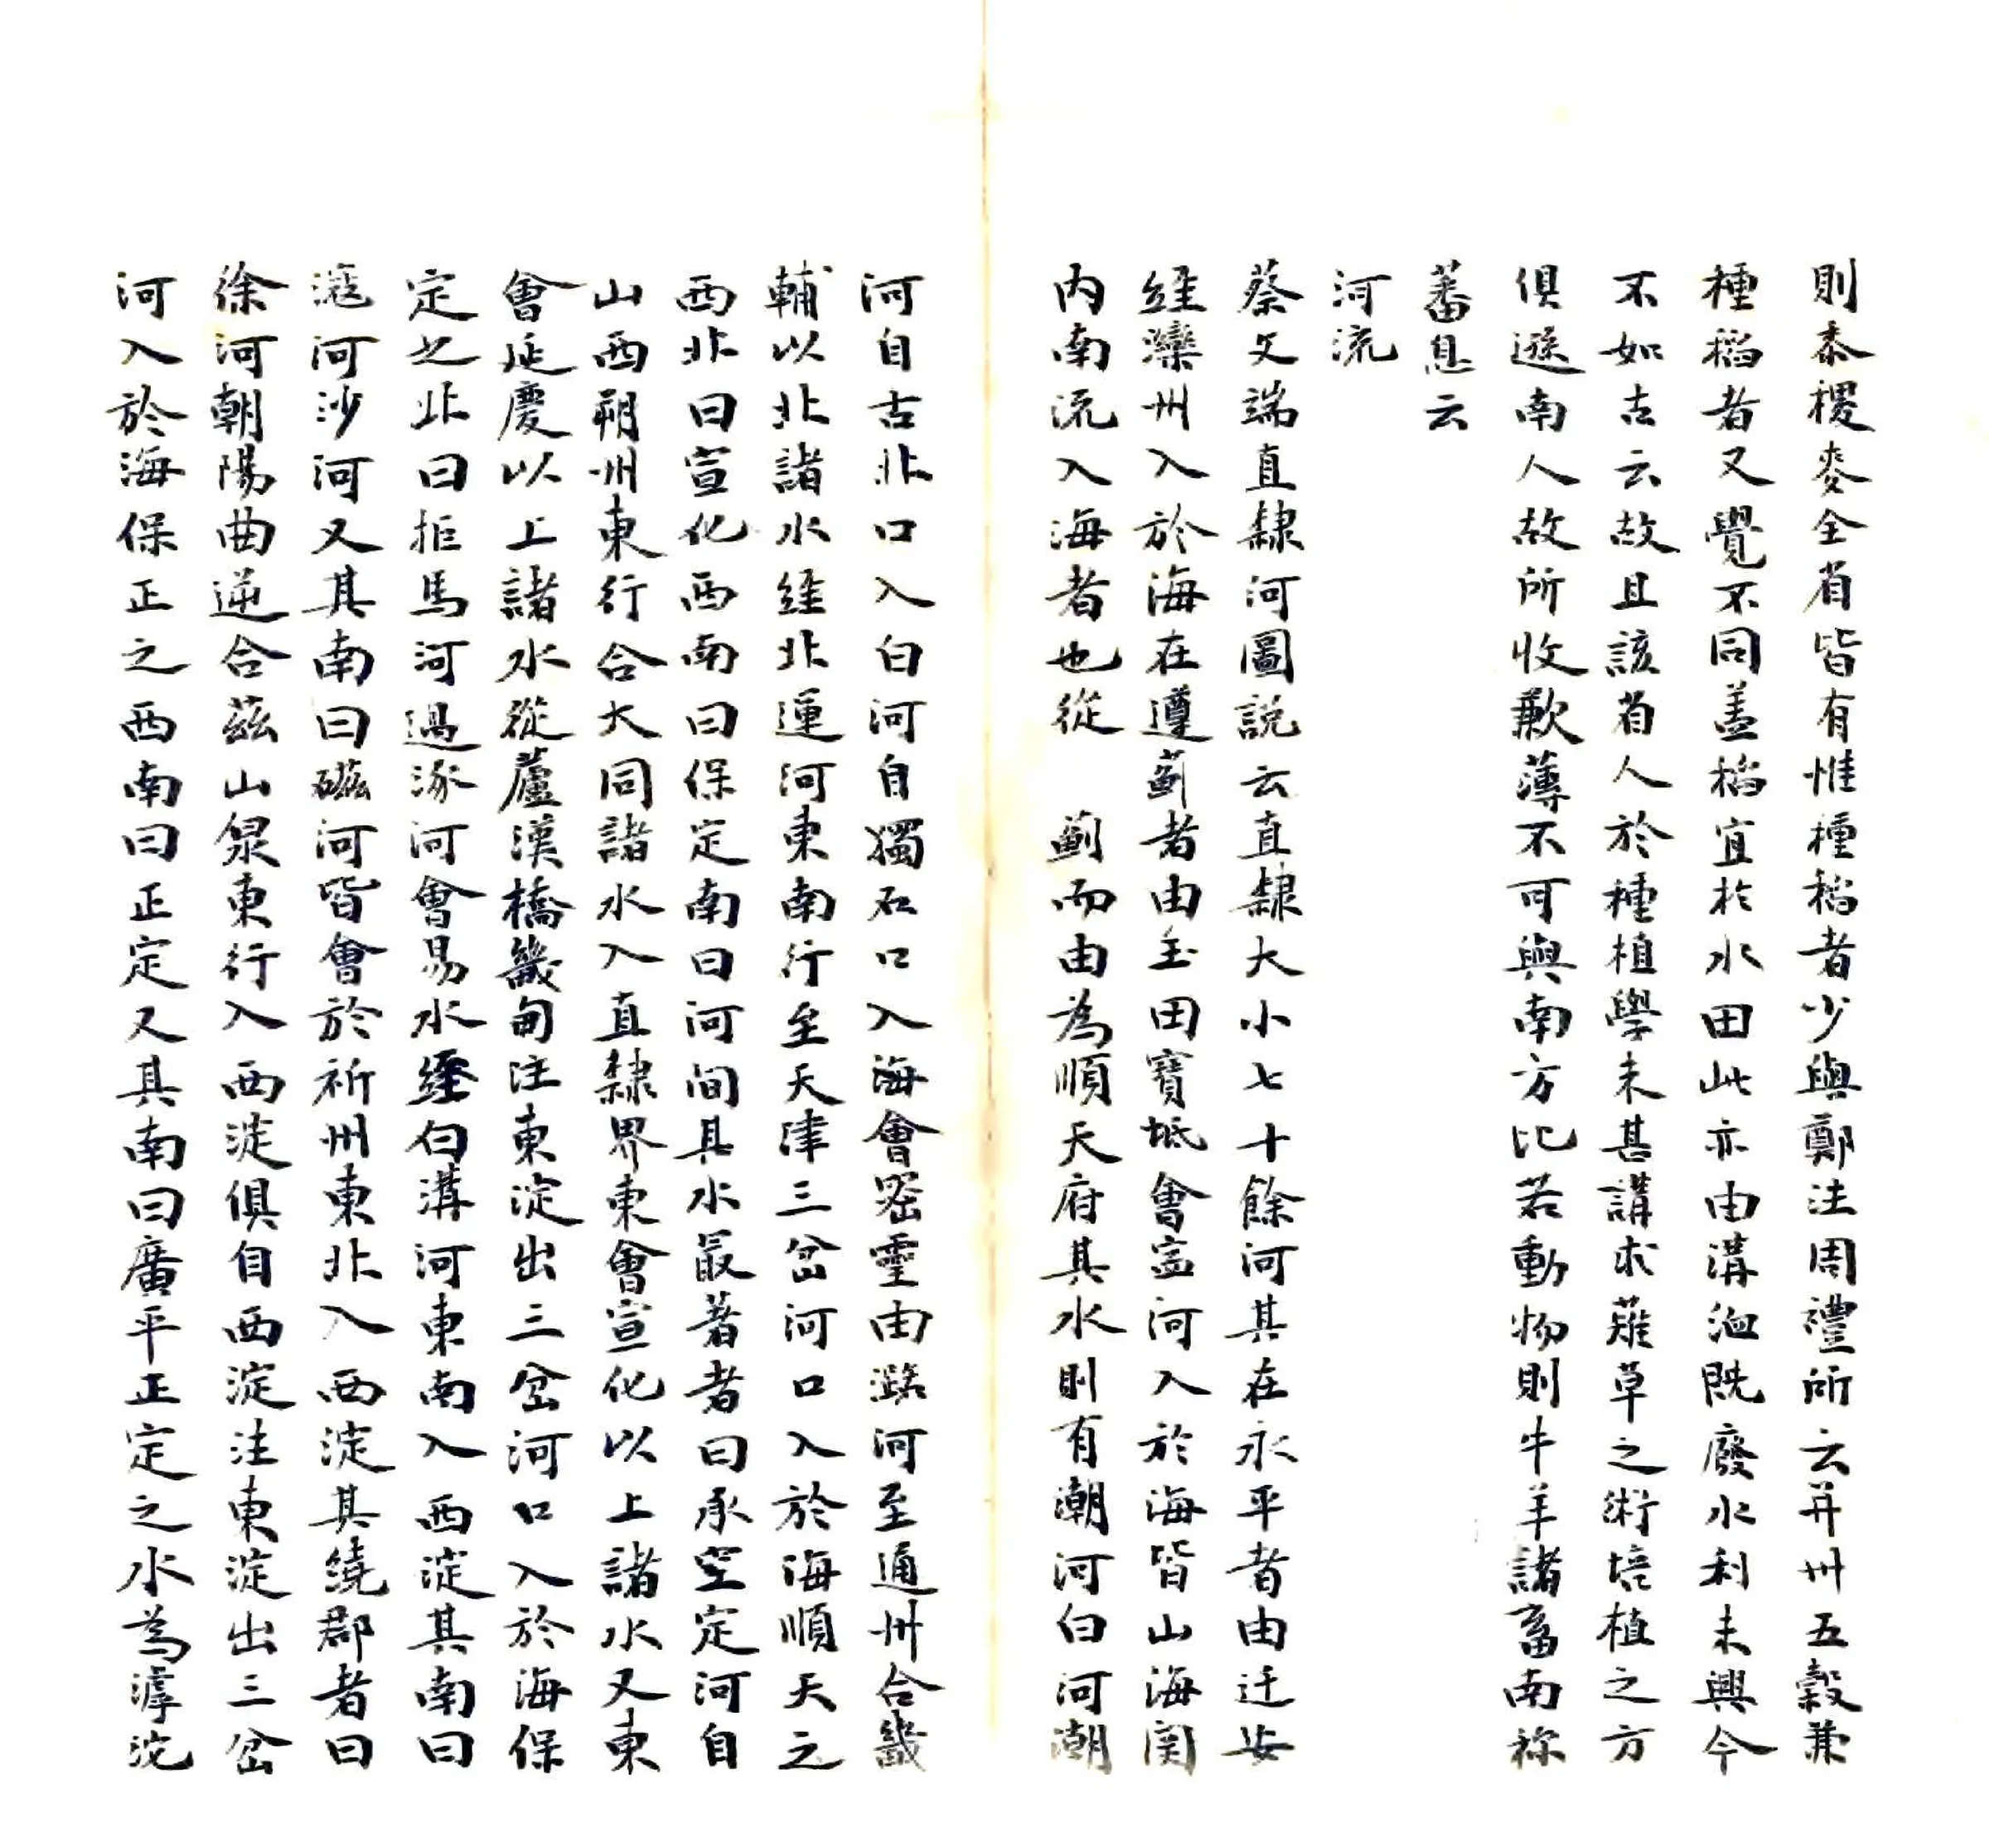 則黍稷麥全省皆有惟種稻者少與鄭注周禮所云并州五穀兼
種稻者又覺不同盖稻宜於水田此亦由溝洫既廢水利未興今
不如古云故且該省人於種植學未甚講求薙草之術培植之方
俱遜南人故所收歉薄不可與南方比若動物則牛羊諸畜南祢
蕃息云
河流
蔡文端直隸河圖說云直隸大小七十餘河其在永平者由迁安
經灤州入於海在遵薊者由玉田寶坻會寍河入於海皆山海関
内南流入海者也從 薊而由為順天府其水則有潮河白河潮
河自古北口入白河自獨石口入海會密雲由潞河至通州合畿
輔以北諸水經北運河東南行至天津三岔河口入於海順天之
西北曰宣化西南曰保定南曰河间其水最著者曰承空定河自
山西朔州東行合大同諸水入直隸界東會宣化以上諸水又東
會延慶以上諸水從蘆漢橋畿甸注東淀出三岔河口入於海保
定之北曰拒馬河過涿河會易水經白溝河東南入西淀其南曰
滱河沙河又其南曰磁河皆會於祈州東北入西淀其繞郡者曰
徐河朝陽曲逆合茲山泉東行入西淀俱自西淀注東淀出三岔
河入於海保正之西南曰正定又其南曰廣平正定之水為滹沱